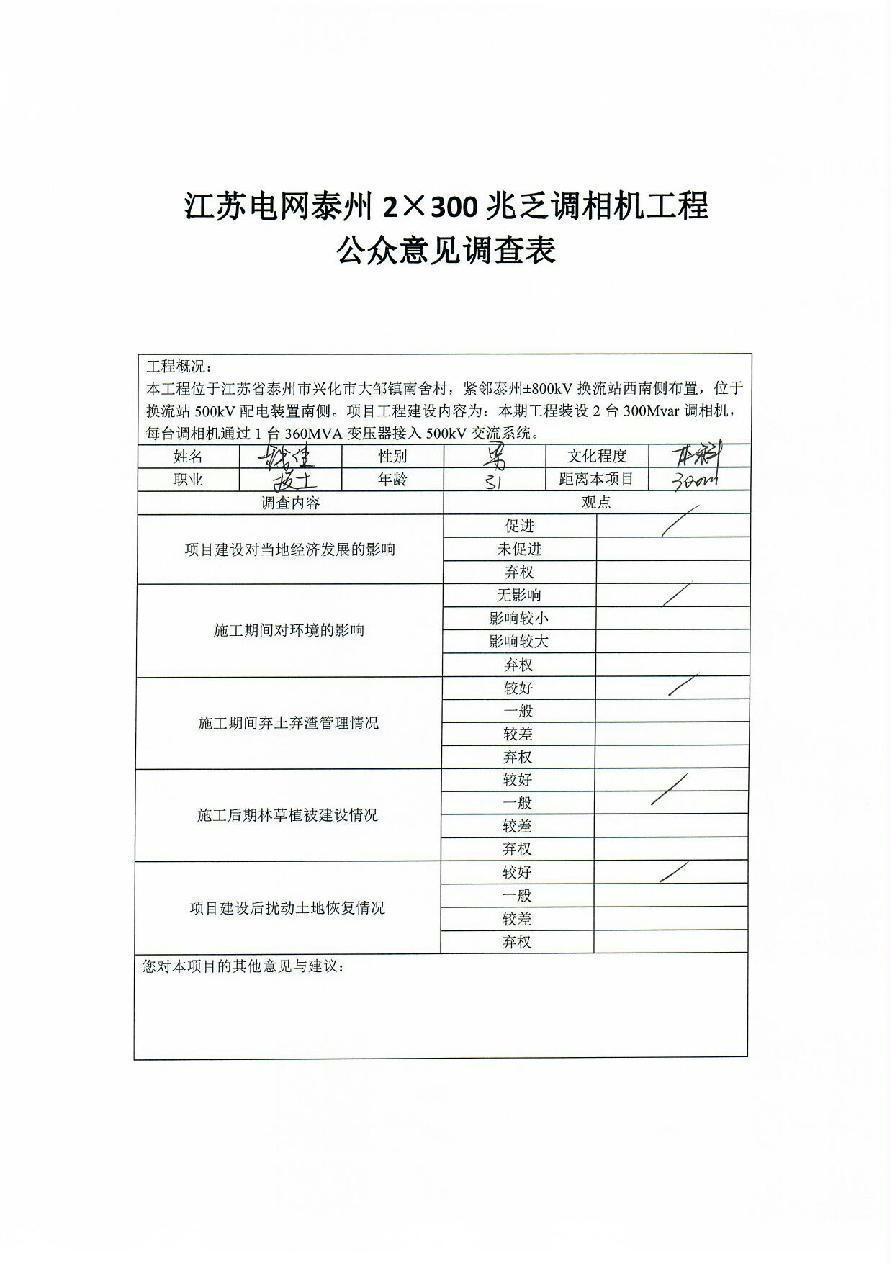 江苏电网泰州 2×300 兆乏调相机工程
公众意见调查表
工程概况：
本工程位于江苏省泰州市兴化市大邹镇南舍村，紧邻泰州±800kV 换流站西南侧布置，位于
换流站 500kV 配电装置南侧。项目工程建设内容为：本期工程装设 2 台 300Mvar 调相机，
每台调相机通过 1 台 360MVA 变压器接入 500kV 交流系统。
姓名 性别 男 文化程度 本科
职业 年龄 31 距离本项目 300m
调查内容 观点
项目建设对当地经济发展的影响
促进
未促进
弃权
施工期间对环境的影响
无影响
影响较小
影响较大
弃权
施工期间弃土弃渣管理情况
较好
一般
较差
弃权
施工后期林草植被建设情况
较好
一般
较差
弃权
项目建设后扰动土地恢复情况
较好
一般
较差
弃权
您对本项目的其他意见与建议：